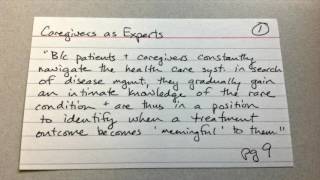 Caregivers as Experts
1
"B/c patients + caregivers constantly
navigate the health care syst. in search
of disease mgmt, they gradually gain
an intimate knowledge of the rare
condition + are thus in a position
to identify when a treatment
outcome becomes 'meaningful' to them"
pg 9